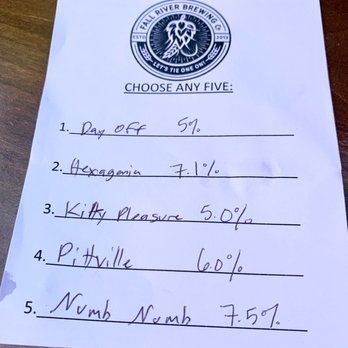 FALL RIVER BREWING CO
ESTD 2013
LET'S TIE ONE ON!
CHOOSE ANY FIVE:
1. Day off 5%
2. Hexagenia 7.1%
3. Kitty Pleasure 5.0%
4. Pittville 6.0%
5. Numb Numb 7.5%